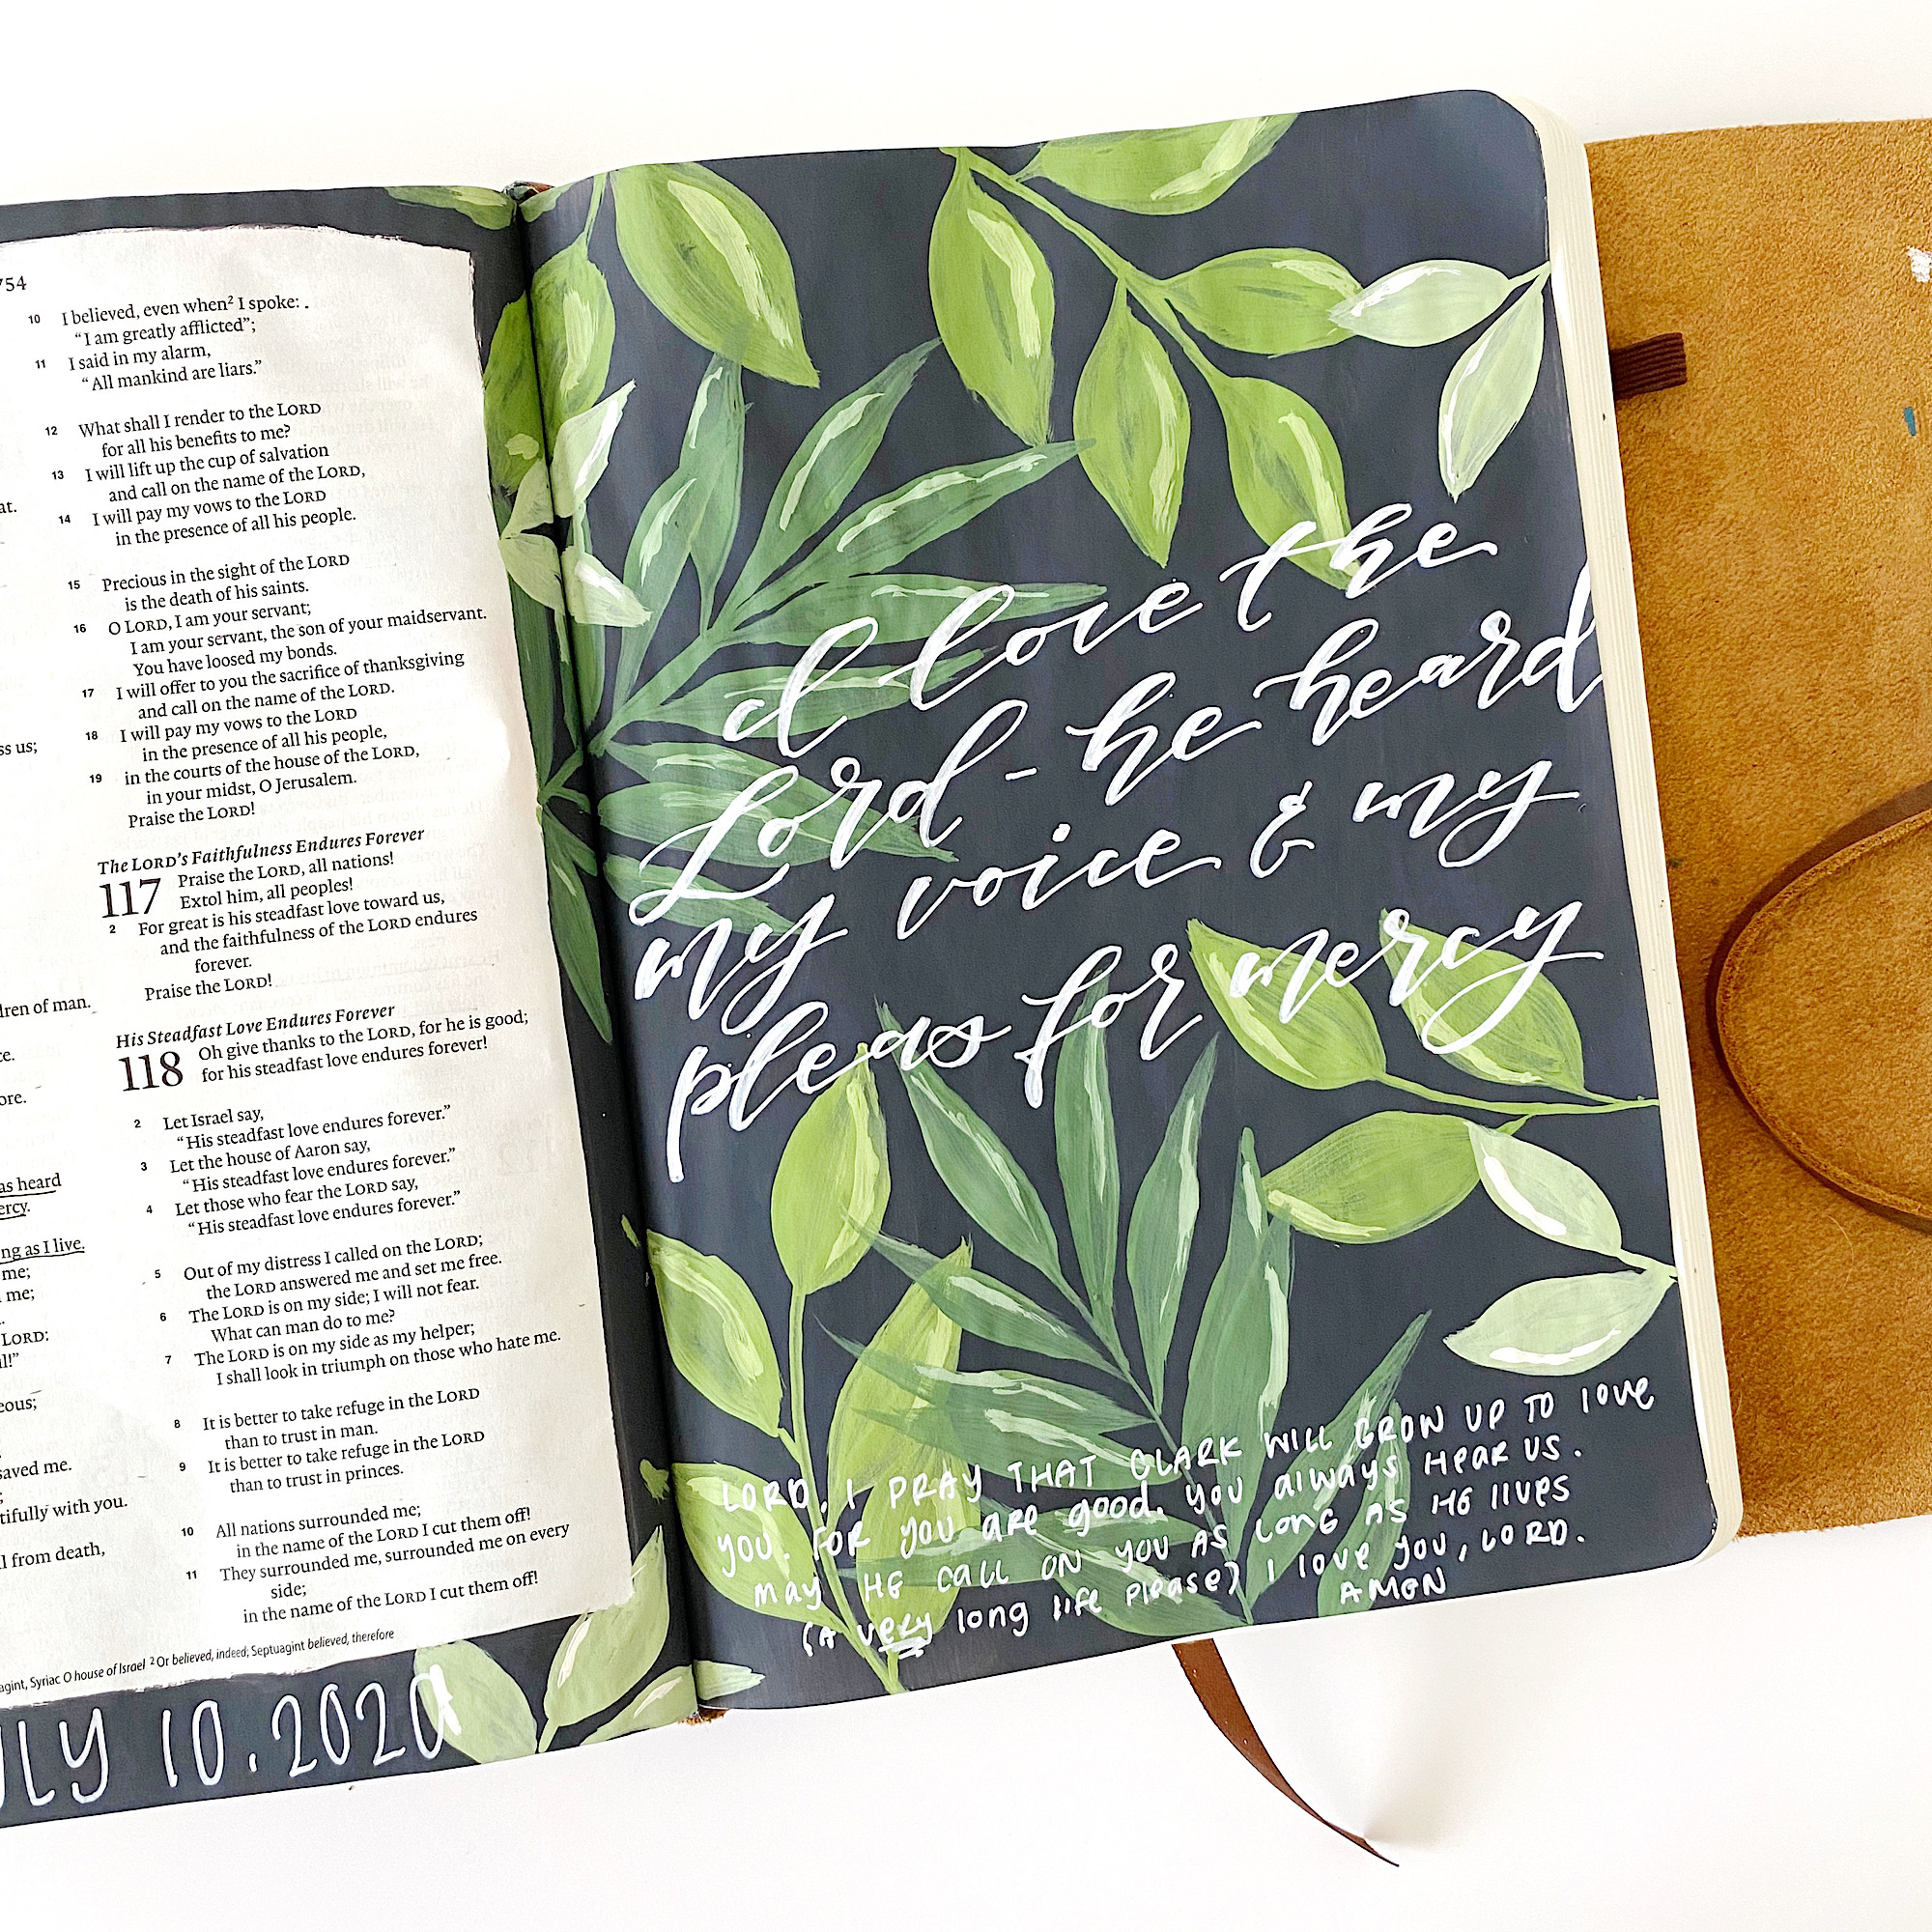 754
10 I believed, even when² I spoke:
“I am greatly afflicted”;
11 I said in my alarm,
“All mankind are liars.”
12 What shall I render to the LORD
for all his benefits to me?
13 I will lift up the cup of salvation
and call on the name of the LORD,
14 I will pay my vows to the LORD
in the presence of all his people.
15 Precious in the sight of the LORD
is the death of his saints.
16 O LORD, I am your servant;
I am your servant, the son of your maidservant.
You have loosed my bonds.
17 I will offer to you the sacrifice of thanksgiving
and call on the name of the LORD.
18 I will pay my vows to the LORD
in the presence of all his people,
19 in the courts of the house of the LORD,
in your midst, O Jerusalem.
Praise the LORD!
The LORD’s Faithfulness Endures Forever
117 Praise the LORD, all nations!
Extol him, all peoples!
2 For great is his steadfast love toward us,
and the faithfulness of the LORD endures
forever.
Praise the LORD!
His Steadfast Love Endures Forever
118 Oh give thanks to the LORD, for he is good;
for his steadfast love endures forever!
2 Let Israel say,
“His steadfast love endures forever.”
3 Let the house of Aaron say,
“His steadfast love endures forever.”
4 Let those who fear the LORD say,
“His steadfast love endures forever.”
5 Out of my distress I called on the LORD;
the LORD answered me and set me free.
6 The LORD is on my side; I will not fear.
What can man do to me?
7 The LORD is on my side as my helper;
I shall look in triumph on those who hate me.
8 It is better to take refuge in the LORD
than to trust in man.
9 It is better to take refuge in the LORD
than to trust in princes.
10 All nations surrounded me;
in the name of the LORD I cut them off!
11 They surrounded me, surrounded me on every
side;
in the name of the LORD I cut them off!
agint, Syriac O house of Israel ² Or believed, indeed; Septuagint believed, therefore
ULY 10.2020
at.
ss us;
dren of man.
ce.
ore.
as heard
ercy.
ng as I live.
me;
me;
LORD:
l!”
eous;
saved me.
tifully with you.
l from death,
I love the
Lord - he heard
my voice & my
pleas for mercy
LORD, I PRAY THAT CLARK WILL GROW UP TO love
you. FOR you are good. you always Hear us.
may HE call on you AS LONG AS HE lives
(A very long life please) I love you, LORD.
AMEN